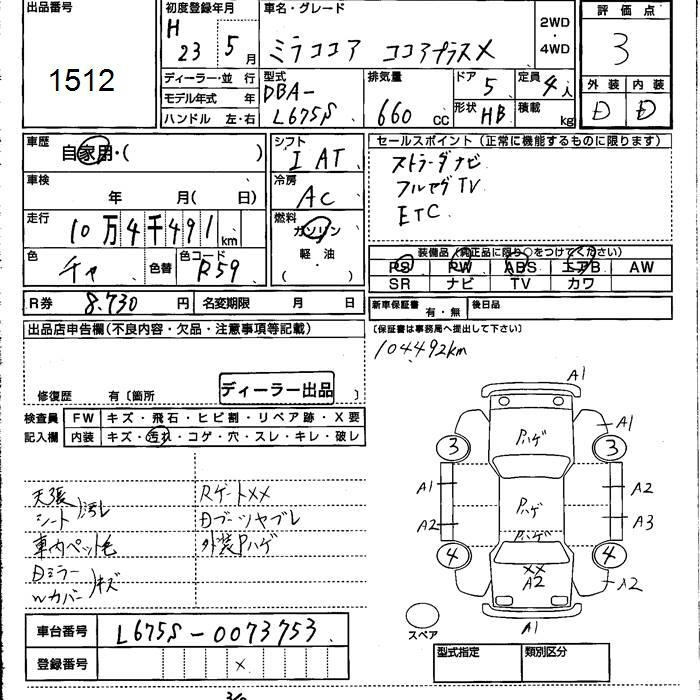 出品番号
1512
初度登録年月
H 23 5月
車名・グレード
ミラココア ココアプラスX
2WD・4WD
評価点
3
外装 内装
D D
ディーラー・並行
モデル年式 年
ハンドル 左・右
型式
DBA-
L675S
排気量
660 cc
ドア 5
形状 HB
定員 4人
積載 kg
車歴
自家用・( )
シフト
I AT
車検
年 月( 日)
冷房
AC
走行
10万4千491km
燃料
ガソリン・軽油( )
色
チャ
色替
色コード
R59
R券 8,730円
名変期限 月 日
セールスポイント(正常に機能するものに限ります)
ストラーダナビ
フルセグTV
ETC
装備品(純正品に限り○をつけてください)
PS PW ABS エアB AW
SR ナビ TV カワ
新車保証書 有・無
後日品
(保証書は事務局へ提出して下さい)
104492km
出品店申告欄(不良内容・欠品・注意事項等記載)
修復歴 有〔箇所 〕
ディーラー出品
検査員記入欄
FW キズ・飛石・ヒビ割・リペア跡・X要
内装 キズ・汚れ・コゲ・穴・スレ・キレ・破レ
天張
シート)汚レ
車内ペット毛
Dミラー
Wカバー)キズ
RゲートXX
Dブーツヤブレ
外装Pハゲ
A1
Pハゲ
A1
3 3
A1 A2
Pハゲ
A2 A3
Pハゲ
4 4
XX
A2
A2
A1
スペア
車台番号 L675S-0073753
登録番号 ×
型式指定 類別区分